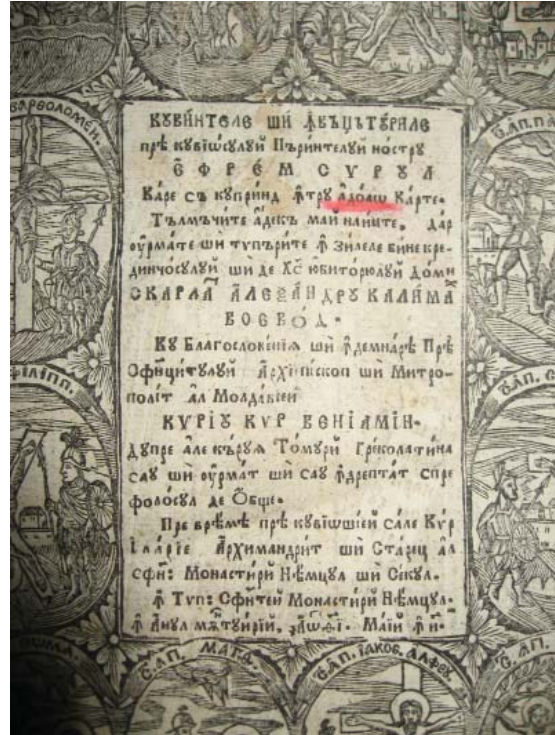 ВАРѲОЛОМЕЙ.
С҃. АП. ПА
КУВИ́НТЕЛЕ ШИ ꙞВЪЦЪТꙊ́РИЛЕ
прѣ кꙋвїѡсꙋлꙋй Пъринтелꙋй но́стрꙋ
Є҆ФРЕ́М СУРУЛ
Ка́ре съ кꙋпри́нд ꙟ҆трꙋ а҆до́аѡ Ка́рте.
Тълмъчи́те а҆декъ май наи́нте, Дар
ѹ҆рма́те ши тѵпъри́те ꙟ҆ Зи́леле бине кре-
динчо́сꙋлꙋй ши де Хс҃ ю҆биторюлꙋй До́мн
СКАРЛАТ А҆ЛЕѮА́НДРꙊ КАЛИМАХ
ВОЕВО́Д.
Кꙋ Благослове́нїѧ ши ꙟ҆демна́рѣ Прѣ
Ѻ҆сфинци́тꙋлꙋй А҆рхїепі́скоп ши Митро-
поли́т ал Молда́вїей
КУРІꙊ КѴР ВЕНІАМІ́Н.
Дꙋпре а҆ле къ́рꙋѧ То́мꙋрй Греколати́на
саꙋ ши ѹ҆рма́т ши саꙋ ꙟ҆дрепта́т спре
фоло́сꙋл де Ѻ҆́бще.
Пре вре́мѣ прѣ кꙋвїѡшїей са́ле Кѵр
І҆ла́рїе А҆рхимандри́т ши Ста́рец ал
сфи҃: Монасти́рй Нѣ́мцꙋл ши Се́кꙋл.
ꙟ҆ Тѵп: Сфи́тей Монасти́рй Нѣ́мцꙋл.
ꙟ҆ А҆́нꙋл мѫтꙋи́рїй, ҂аѡѳ҃і. Ма́їй ꙟ҆ и҃.
ФІЛІПП.
С҃. АП.
ѲОМА.
С҃. АП. МАТѲ.
С҃. АП. ІАКОВ. АЛФЕꙊ.
С҃. АП.